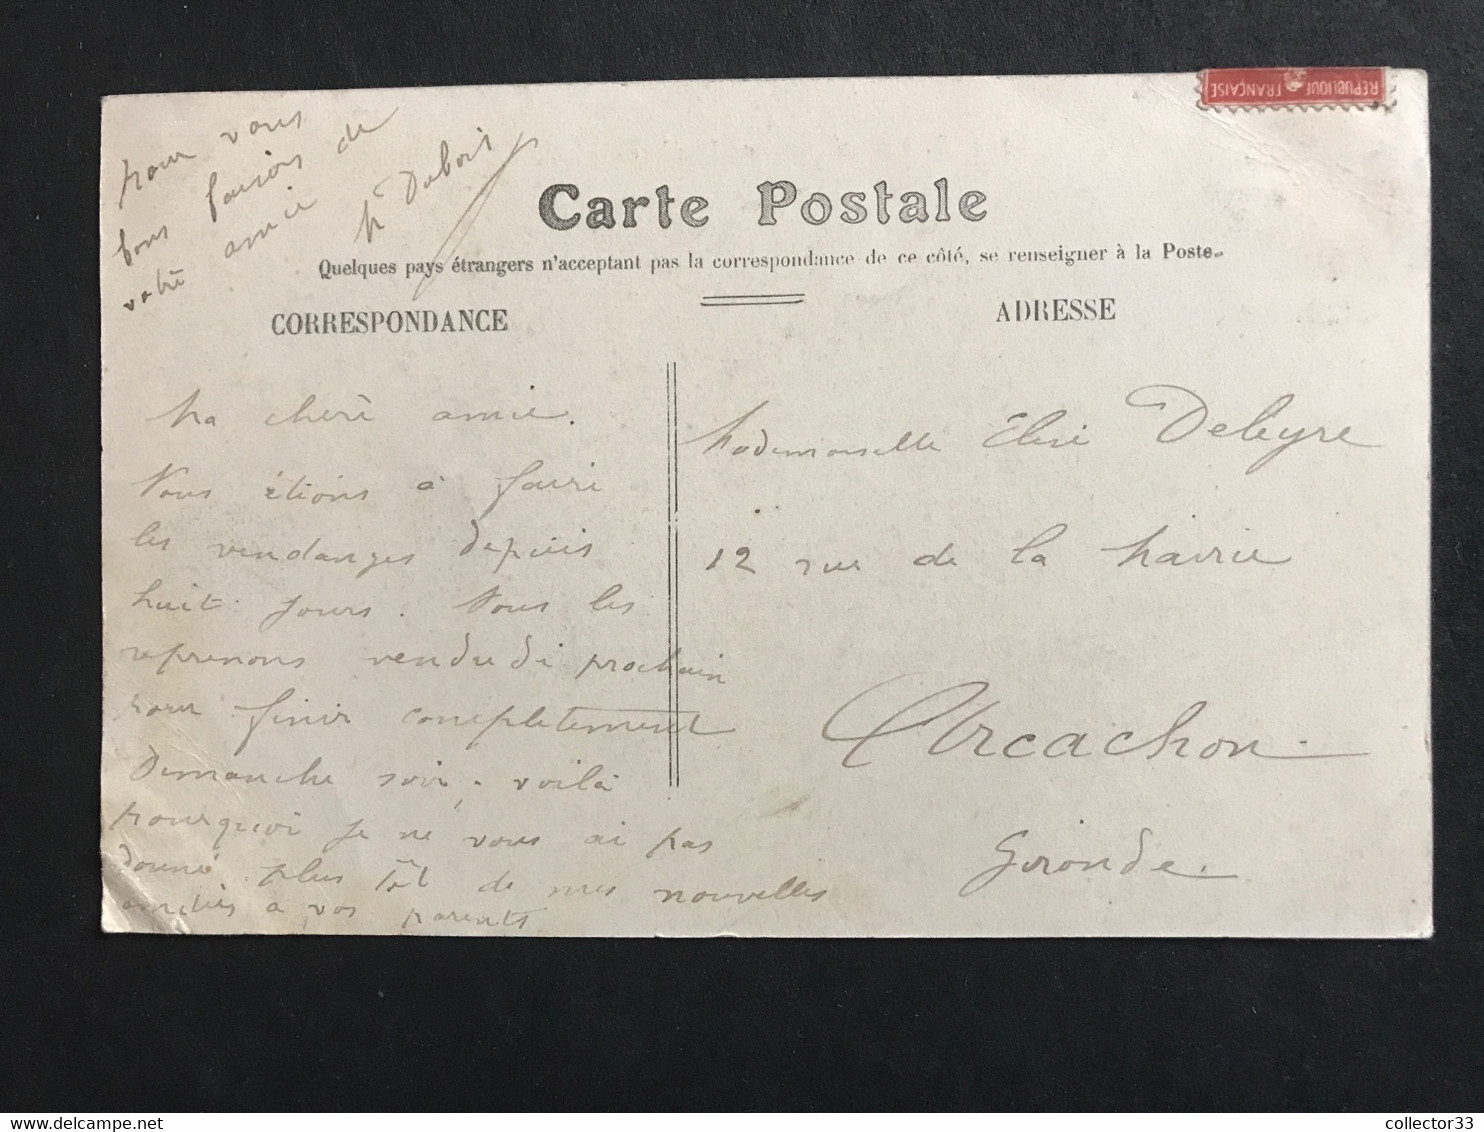 pour vous
bons baisers de
votre amie
M Dubois
REPUBLIQUE FRANÇAISE
Carte Postale
Quelques pays étrangers n'acceptant pas la correspondance de ce côté, se renseigner à la Poste.
CORRESPONDANCE
ADRESSE
Ma chère amie.
Nous étions à faire
les vendanges depuis
huit jours. Nous les
reprenons vendredi prochain
pour finir complètement
Dimanche soir, voilà
pourquoi je ne vous ai pas
donné plus tôt de mes nouvelles
amitiés a vos parents
Mademoiselle Elise Deleyre
12 rue de la Mairie
Arcachon
Gironde.
delcampe.net
collector33